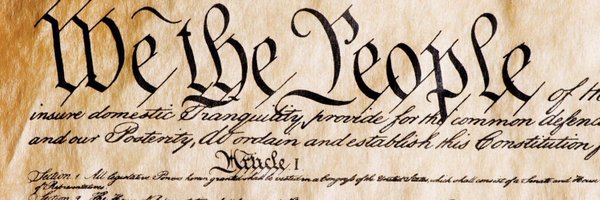 We the People of th
insure domestic Tranquility, provide for the common defence
and our Posterity, do ordain and establish this Constitution f
Article I
Section 1 All legislative Powers herein granted shall be vested in a Congress of the United States, which shall consist of a Senate and House
of Representatives
Section 2 The House